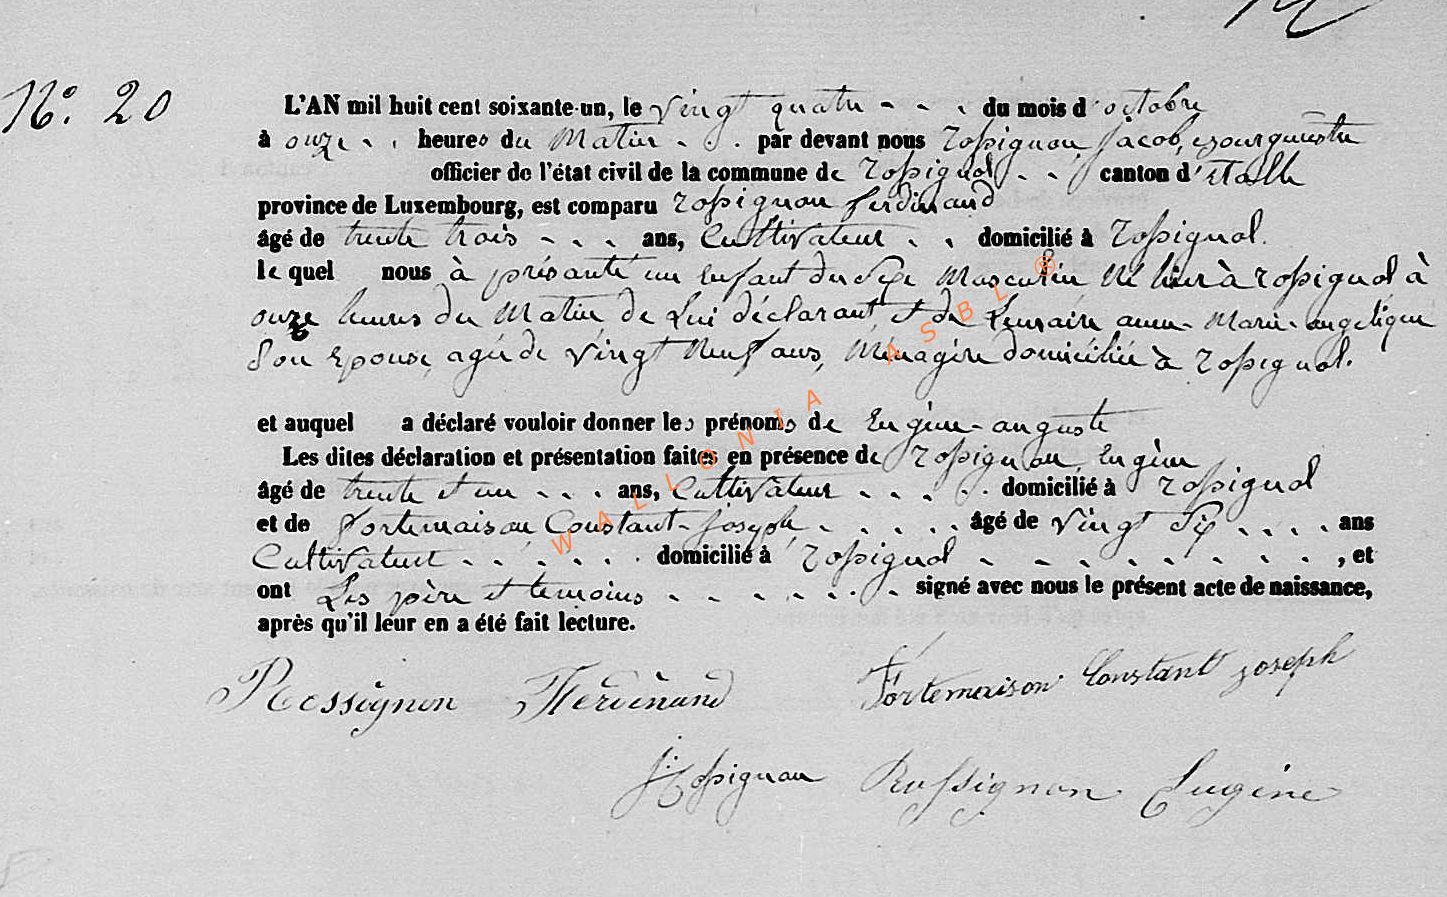 N°. 20
L'AN mil huit cent soixante-un, le vingt quatre - - - du mois d'octobre
à onze - . heures du Matin - . . par devant nous Rossignon, jacob, bourguestre
officier de l'état civil de la commune de Rossignol - - canton d'Etalle
province de Luxembourg, est comparu Rossignon ferdinand
âgé de trente trois - - - ans, Cultivateur . . domicilié à Rossignol.
le quel nous à présenté un enfant du Sexe Masculin Né hier à Rossignol à
onze heures du Matin de Lui déclarant et de Lemaire anne-Marie-angelique
Son Epouse, agée de vingt Neuf ans, Ménagère domiciliée à Rossignol.
et auquel a déclaré vouloir donner les prénoms de Eugène-auguste
Les dites déclaration et présentation faites en présence de Rossignon, Eugène
âgé de trente et un - - - ans, Cultivateur . . . . . domicilié à Rossignol
et de fortemaison Constant-joseph, . . . . . âgé de vingt Six . . . . ans
Cultivateur . . . . . . domicilié à Rossignol - - - - - - - - , et
ont Les père et temoins - - - - - - - signé avec nous le présent acte de naissance,
après qu'il leur en a été fait lecture.
Rossignon Ferdinand Fortemaison Constant joseph
J: Rossignon Rossignon Eugène
WALLONIA ASBL ®